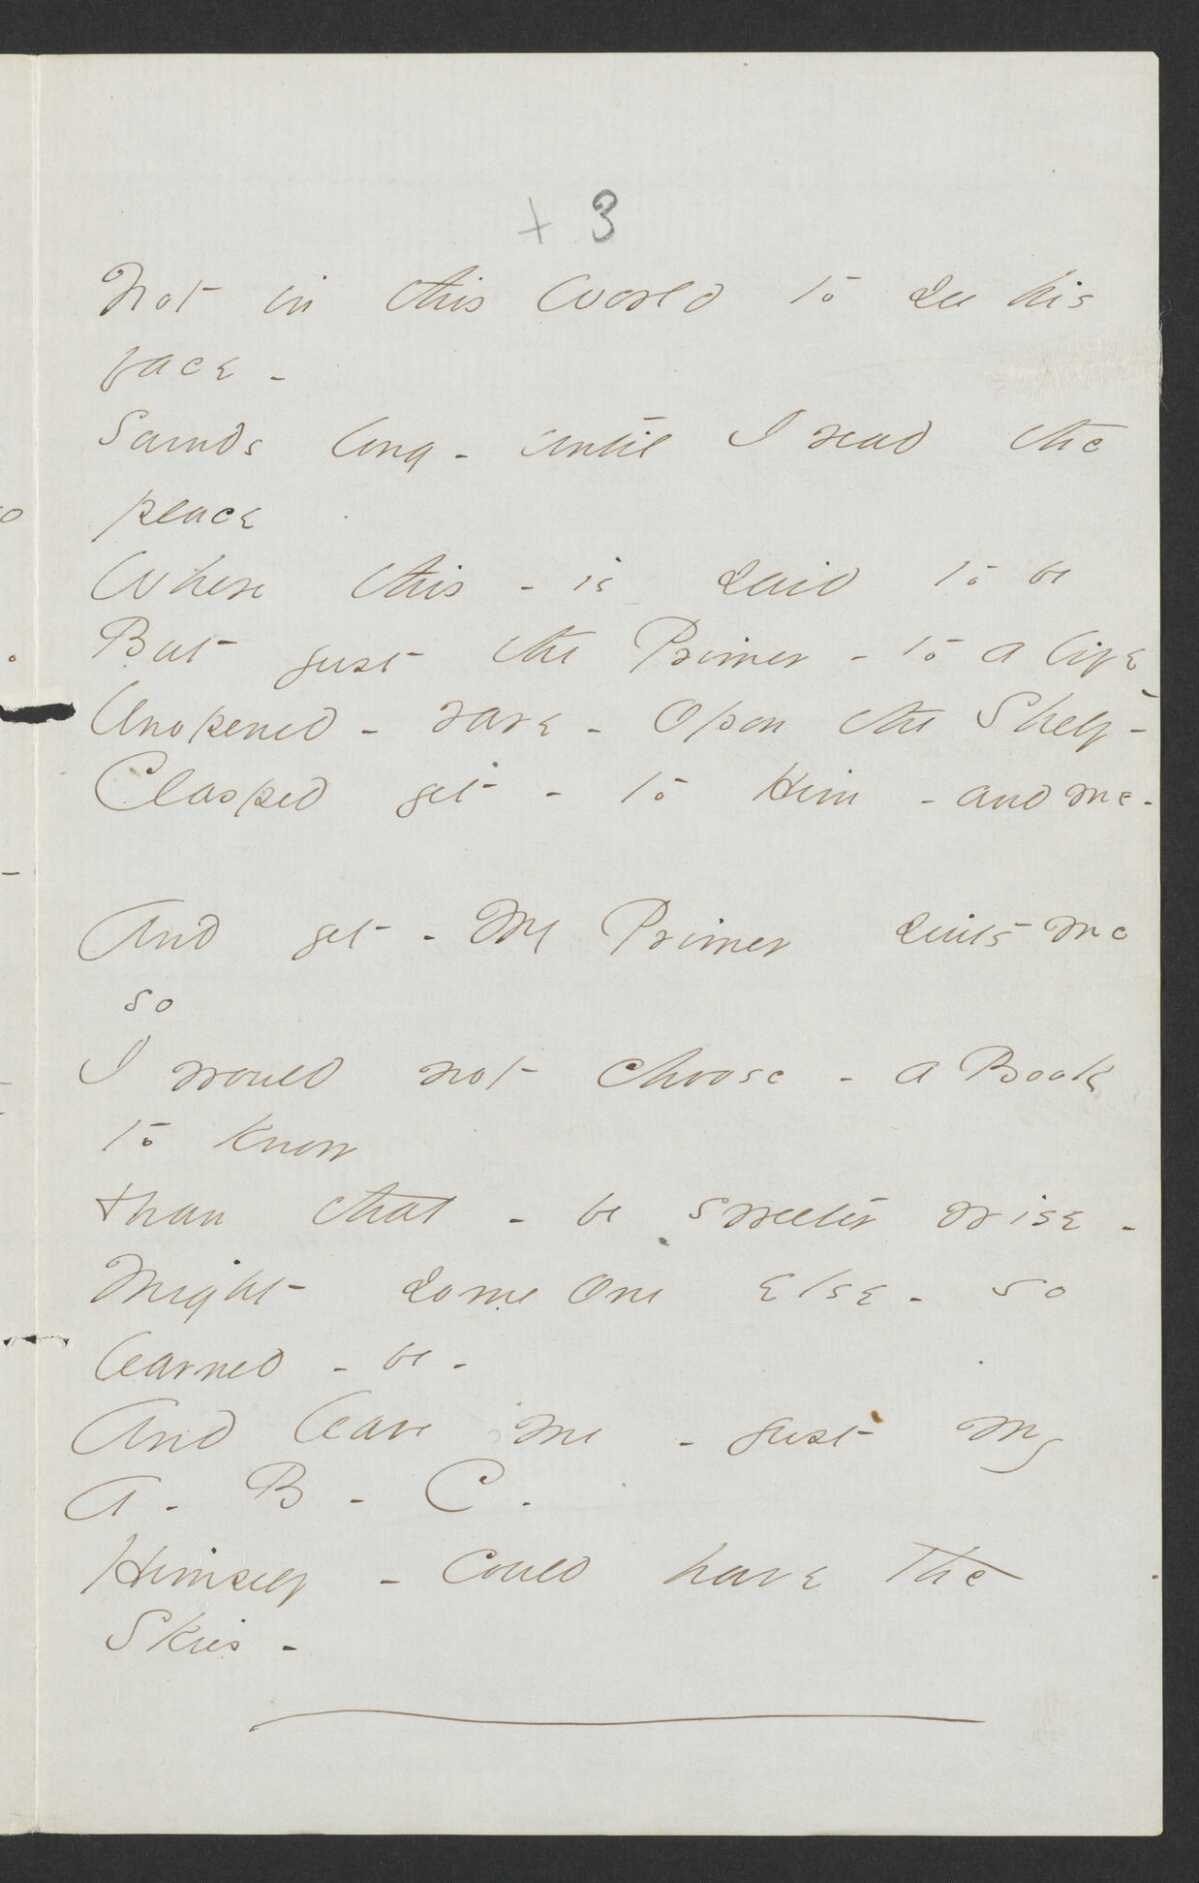 + 3
Not in this World to see his
face -
Sounds long - until I read the
place
Where this - is said to be
But just the Primer - to a life
Unopened - rare - Opon the Shelf -
Clasped yet - to Him - and me -
And yet - My Primer suits me
so
I would not choose - a Book
to know
Than that - be sweeter wise -
Might some one else - so
learned - be -
And leave me - just my
A - B - C -
Himself - could have the
Skies -